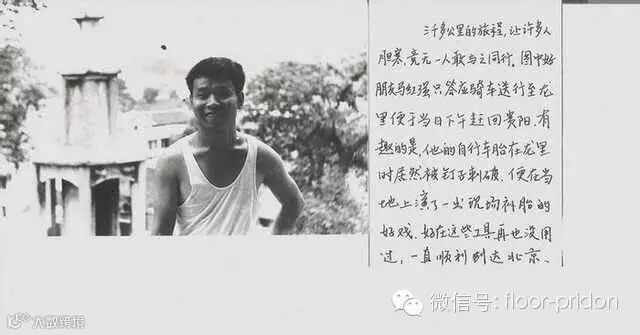 三千多公里的旅程，让许多人
胆寒，竟无一人敢与之同行。图中好
朋友马红强只答应骑车送行至龙
里便于当日下午赶回贵阳．有
趣的是，他的自行车胎在龙里
时居然被钉子刺破，便在当
地上演了一出现场补胎的
好戏．好在这些工具再也没用
过，一直顺利到达北京、
大数跨境
微信号: floor-pridon